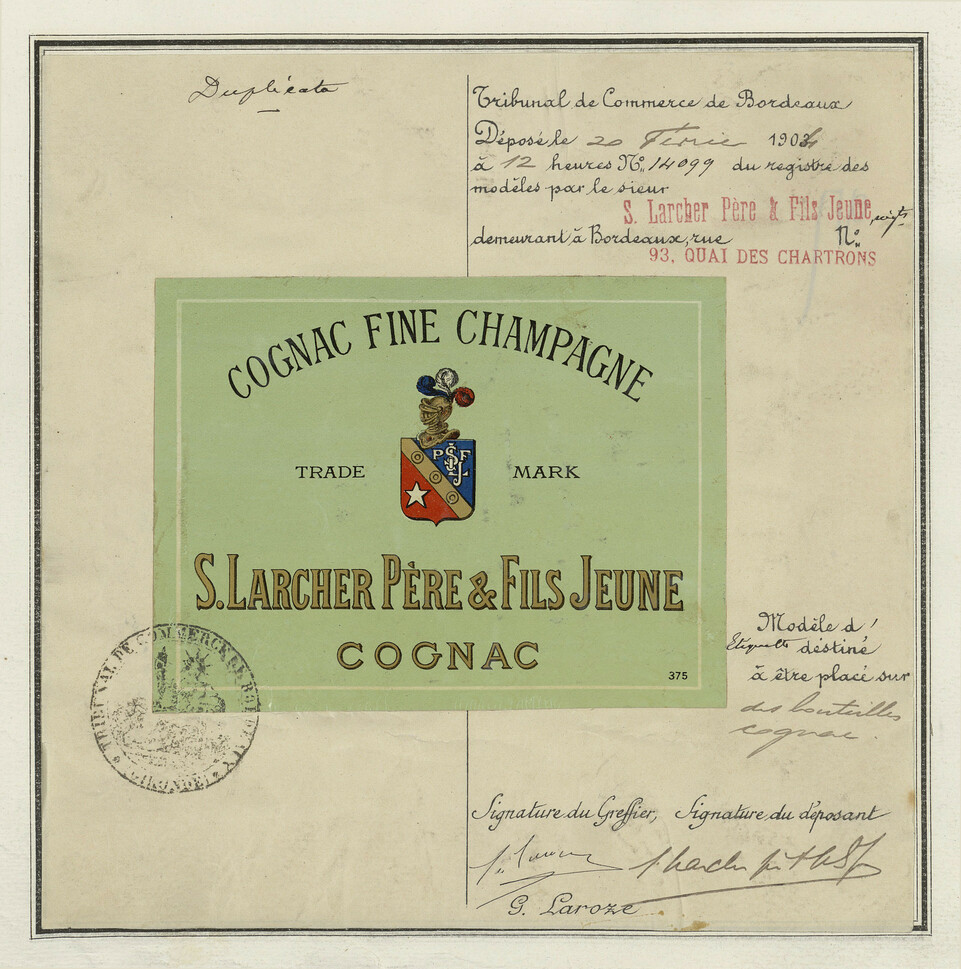 Duplicata
Tribunal de Commerce de Bordeaux
Déposé le 20 Février 1904
à 12 heures N° 14099 du registre des
modèles par le sieur
S. Larcher Père & Fils Jeune, négts
demeurant à Bordeaux, rue N°
93, QUAI DES CHARTRONS
COGNAC FINE CHAMPAGNE
PSF
J
TRADE MARK
S. LARCHER PÈRE & FILS JEUNE
COGNAC
375
TRIBUNAL DE COMMERCE DE BORDEAUX
(GIRONDE)
Modèle d'
Etiquette destiné
à être placé sur
des bouteilles
cognac.
Signature du Greffier, Signature du déposant
G. Laroze